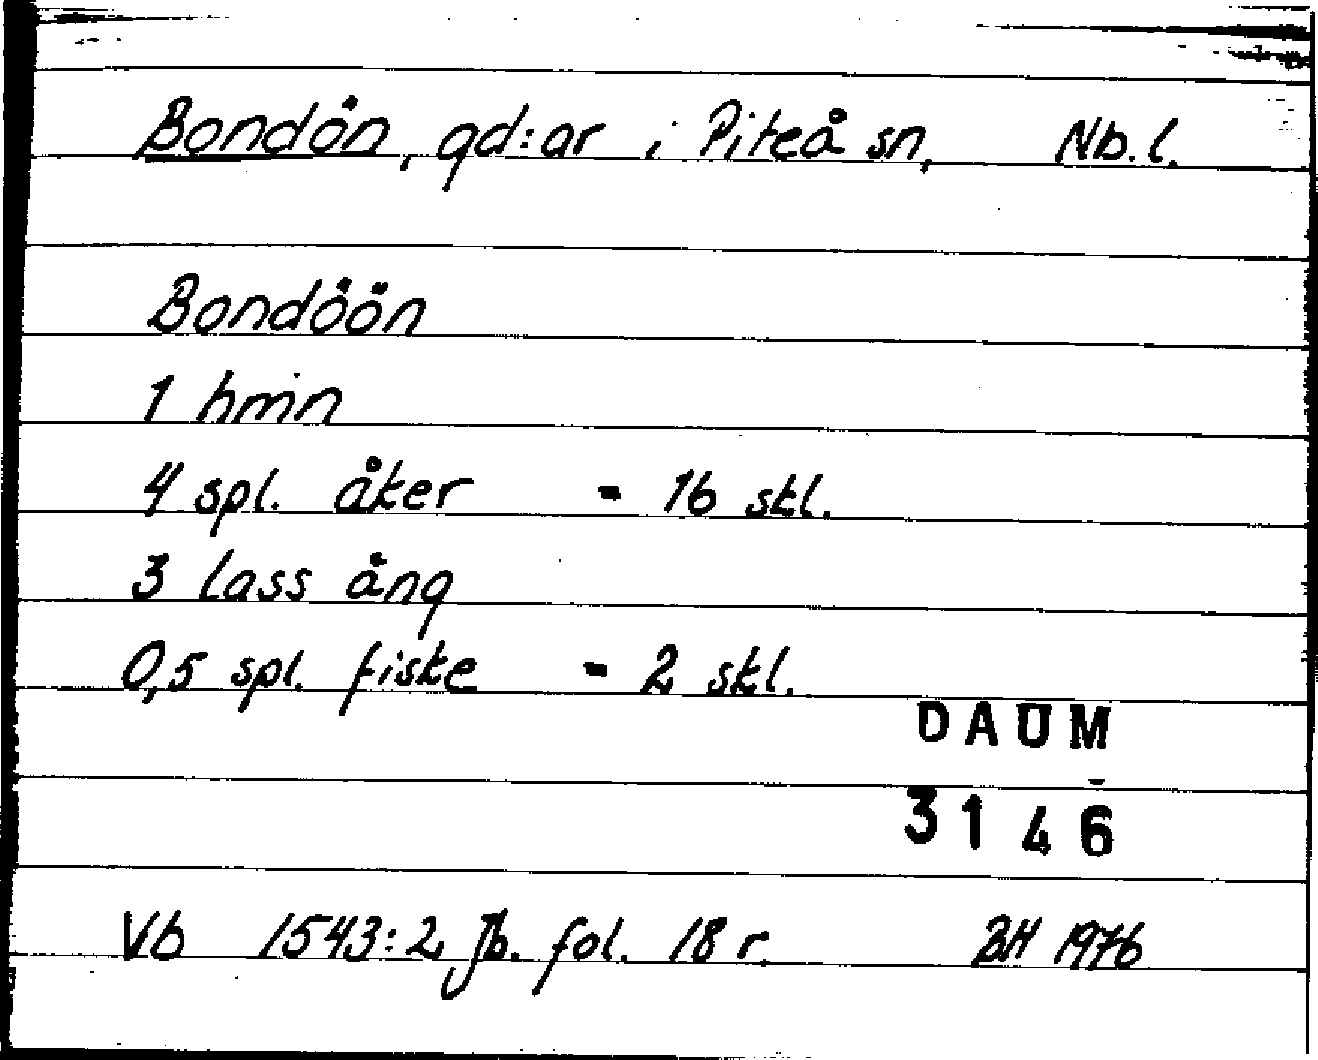 Bondön, gd:ar i Piteå sn, Nb.l.
Bondöön
1 hmn
4 spl. åker = 16 skl.
3 lass äng
0,5 spl. fiske = 2 skl.
DAUM
3146
Vb 1543:2 Jb. fol. 18 r. BH 1976